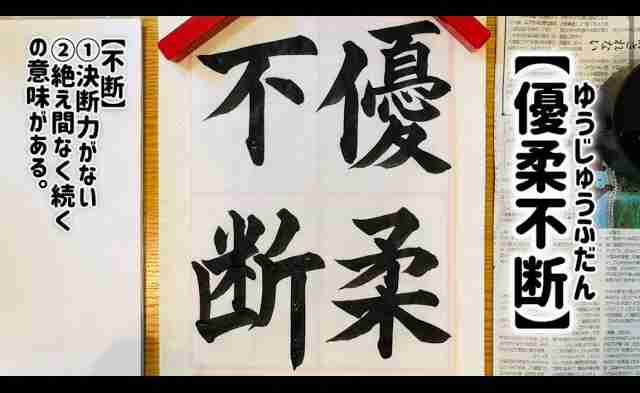 ゆうじゅうふだん
【優柔不断】
優柔
不断
【不断】
①決断力がない
②絶え間なく続く
の意味がある。